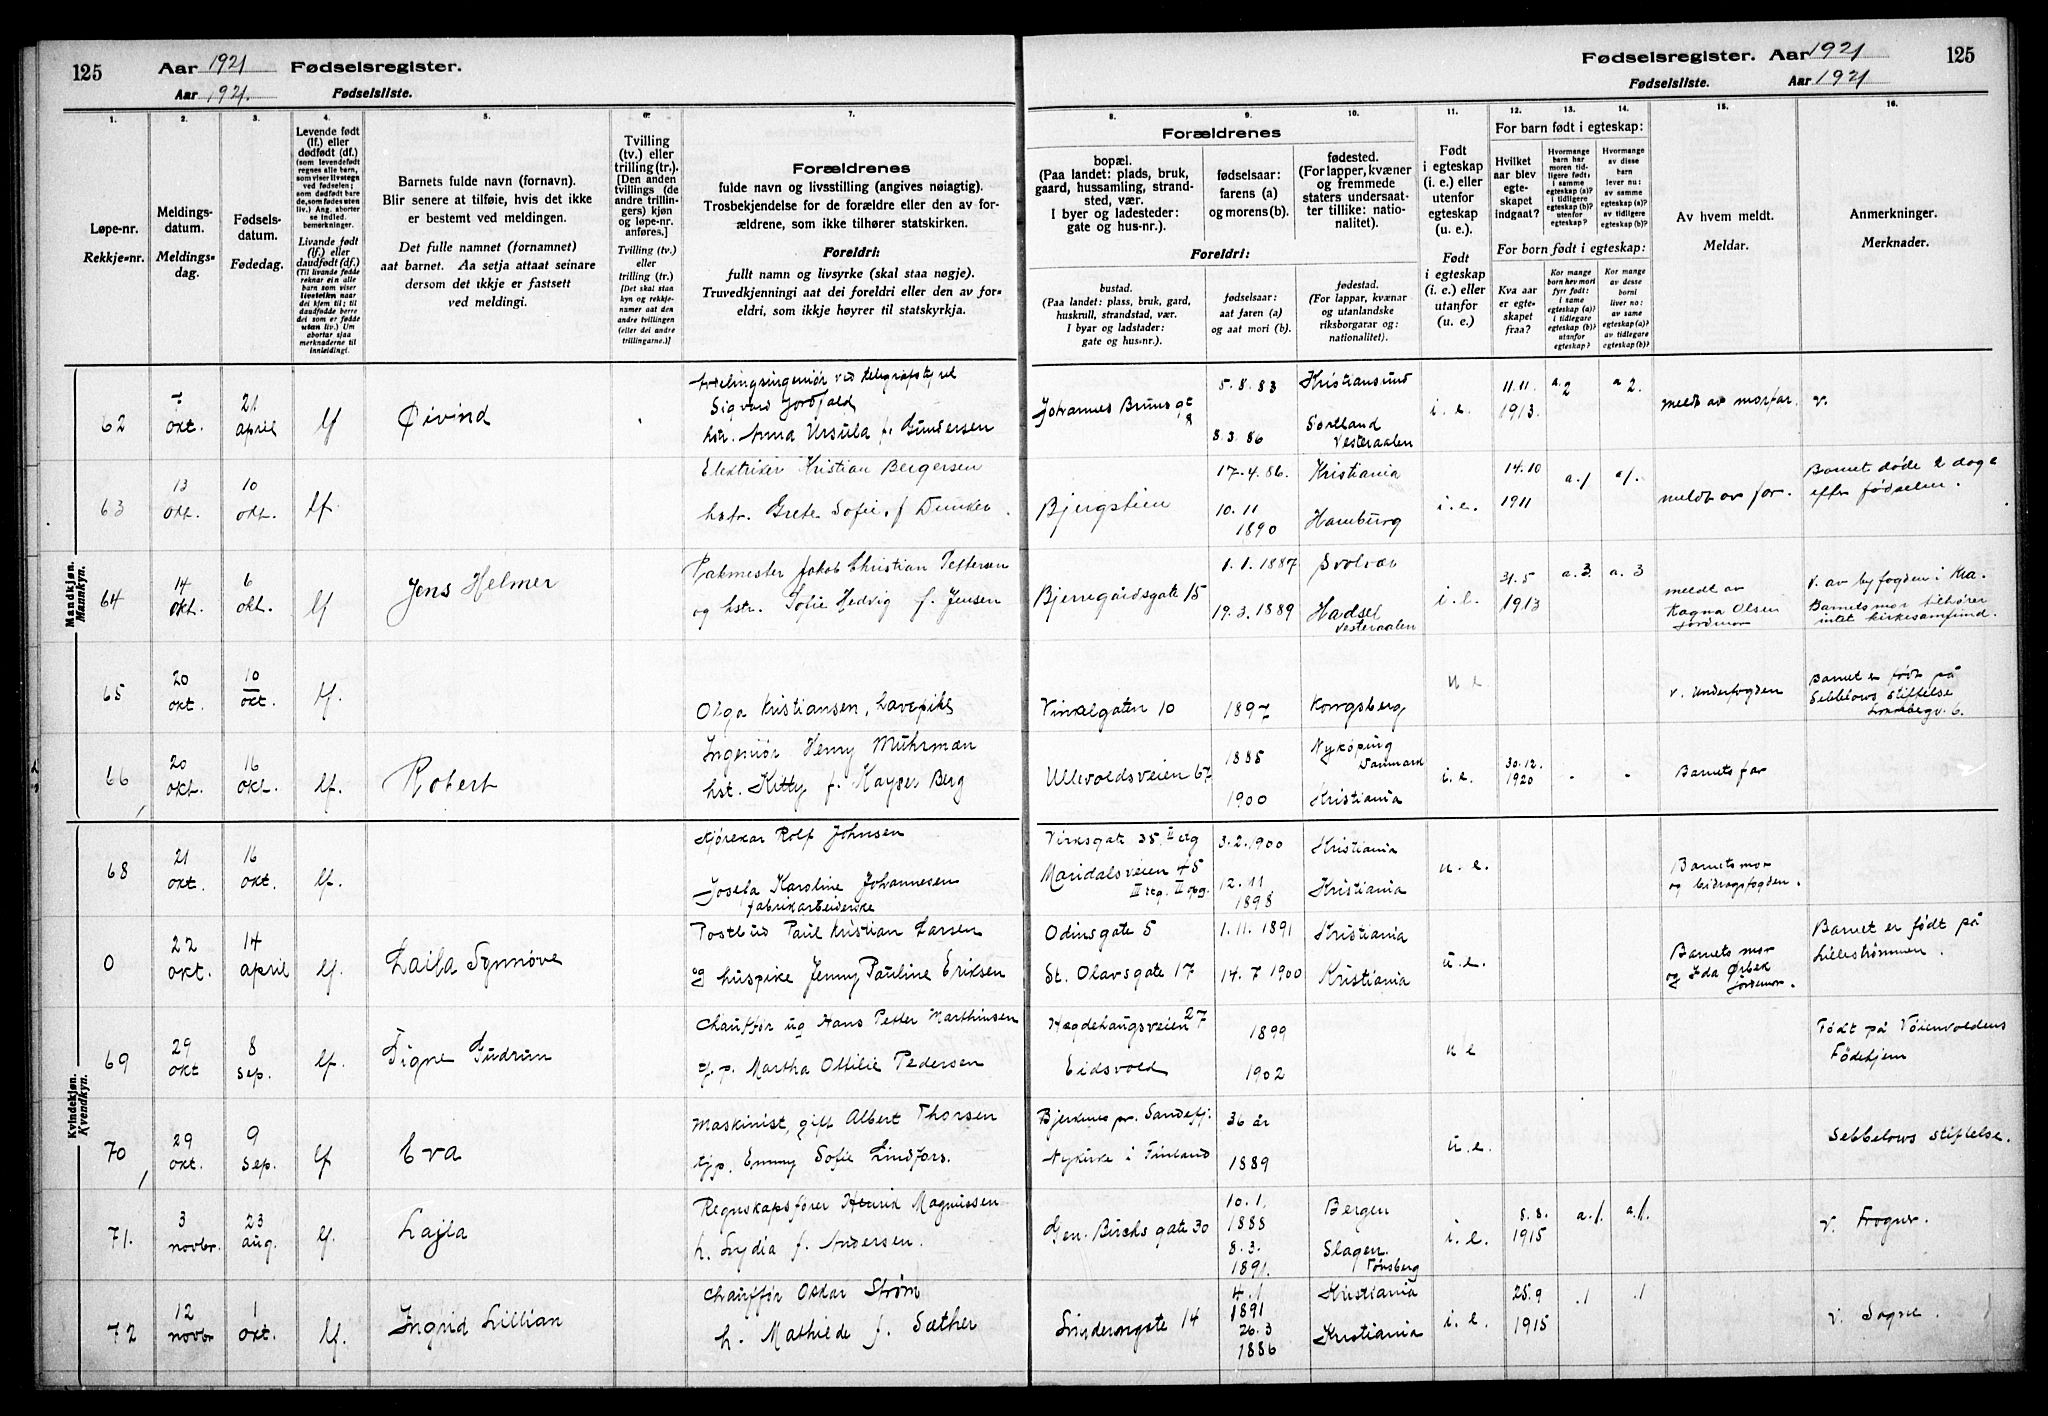 125
Aar 1921 Fødselsregister.
Aar 1921. Fødselsliste.
Fødselsregister. Aar 1921
Fødselsliste. Aar 1921
125
1.
2.
3.
4.
5.
6.
7.
8.
9.
10.
11.
12.
13.
14.
15.
16.
Løpe-nr.
Rekkje=nr.
Meldings-
datum.
Meldings=
dag.
Fødsels-
datum.
Fødedag.
Levende født
(lf.) eller
dødfødt (df.)
(som levendefødt
regnes alle barn,
som viser livstegn
ved fødselen;
som dødfødt bare
de, som fødes uten
liv.) Ang. aborter
se indled.
bemerkninger.
Livande født
(lf.) eller
daudfødt (df.)
(Til livande fødde
reknar ein alle
barn som viser
livsteikn naar
dei kjem til; til
daudfødde berre
dei som er fødde
utan liv.) Um
abortar sjaa
merknaderne til
innleiding!
Barnets fulde navn (fornavn).
Blir senere at tilføie, hvis det ikke
er bestemt ved meldingen.
Det fulle namnet (fornamnet)
aat barnet. Aa setja attaat seinare
dersom det ikkje er fastsett
ved meldingi.
Tvilling
(tv.) eller
trilling (tr.).
[Den anden
tvillings (de
andre trillin-
gers) kjøn
og løpe-nr.
anføres.]
Tvilling (tv.)
eller
trilling (tr.)
[Det skal staa
kyn og rekkje-
numer aat den
andre tvillingen
(eller dei andre
trillingarne.)]
Forældrenes
fulde navn og livsstilling (angives nøiagtig).
Trosbekjendelse for de forældre eller den av for-
ældrene, som ikke tilhører statskirken.
Foreldri:
fullt namn og livsyrke (skal staa nøgje).
Truvedkjenningi aat dei foreldri eller den av for=
eldri, som ikkje høyrer til statskyrkja.
Forældrenes
bopæl.
(Paa landet: plads, bruk,
gaard, hussamling, strand-
sted, vær.
I byer og ladesteder:
gate og hus-nr.).
fødselsaar:
farens (a)
og morens (b).
fødested.
(For lapper, kvæner
og fremmede
staters undersaat-
ter tillike: natio-
nalitet).
Foreldri:
bustad.
(Paa landet: plass, bruk, gard,
huskrull, strandstad, vær.
I byar og ladstader:
gate og hus=nr.).
fødselsaar:
aat faren (a)
og aat mori (b).
fødestad.
(For lappar, kvænar
og utanlandske
riksborgarar og:
nationalitet).
Født
i egteskap
(i. e.) eller
utenfor
egteskap
(u. e.).
Født
i egteskap
(i. e.) eller
utanfor
(u. e.).
For barn født i egteskap:
Hvilket
aar blev
egte-
skapet
indgaat?
Hvormange
barn har
moren tid-
ligere født:
i samme
egteskap (a)?
i tidligere
egteskap (b)?
utenfor
egteskap?
Hvormange
av disse
barn
lever nu:
av samme
egteskap (a)?
av tidligere
egteskap (b)?
For born født i egteskap:
Kva aar
er egte-
skapet
fraa?
Kor mange
born hev mori
fyrr født:
i same
egteskap (a)?
i tidlegare
egteskap (b)?
utanfor
egteskap?
Kor mange
av desse
borni
liver no:
av same
egteskap (a)?
av tidlegare
egteskap (b)?
Av hvem meldt.
Meldar.
Anmerkninger.
Merknader.
Mandkjøn.
Mannkyn.
62
7 okt.
21 april
lf
Øivind
Avdelingsingeniør ved telegrafstyret
Sigvard Jordfald
hstr. Anna Ursula f. Gundersen
Johannes Bruns gt 8
5.8.83
8.3.86
Kristiansund
Sortland Vesteraalen
i.e.
11.11. 1913.
a. 2
a 2.
meldt av morfar.
v.
63
13 okt.
10 okt.
lf.
Elektriker Kristian Bergersen
hstr. Grete Sofie f Duncker.
Bjergstien
17.4.86.
10.11 1890
Kristiania
Hamburg
i.e.
14.10 1911
a./
a/.
meldt av far.
Barnet døde 2 dage
efter fødselen.
64
14 okt.
6 okt.
lf
Jens Helmer
Pakmester Jakob Christian Pettersen
og hstr. Sofie Hedvig f. Jensen
Bjerregårdsgate 15
1.1.1887
19.3.1889
Svolvær
Hadsel Vesteraalen
i.e.
31.5 1913
a.3.
a. 3
meldt av
Ragna Olsen
jordmor
v. av byfogden i Kra.
Barnets mor tilhører
intet kirkesamfund.
65
20 okt.
10 okt.
lf.
Olga Kristiansen,
10
1897
Kongsberg
u e
v. Underfogden
Barnet er født på
Sebbelows stiftelse
66
20 okt.
16 okt.
lf.
Robert
Ingeniør Henry Muhrman
hst. Kitty f. Kayser Berg
Ullevoldsveien 67
1885
1900
Nykøping Danmark
Kristiania
i.e.
30.12. 1920
-
-
Barnets far
Kvindekjøn.
Kvendkyn.
68
21 okt.
16 okt.
lf.
Kjørekar Rolf Johnsen
Josefa Karoline Johannesen
fabrikarbeiderske
35. II etg
Maridalsveien 45
III etg. II opg.
3.2.1900
12.11 1898
Kristiania
Kristiania
u.e.
Barnets mor
og bidragsfogden.
0
22 okt.
14 april
lf.
Laila Synnøve
Postbud Paul Kristian Larsen
og huspike Jenny Pauline Eriksen
Odinsgate 5
St. Olavsgate 17
1.11.1891
14.7 1900
Kristiania
Kristiania
u.e.
Barnets mor
og Ida Ørbek
jordmor.
Barnet er født på
Lillestrømmen.
69
29 okt
8 sep.
lf.
Signe Gudrun
Chauffør ug Hans Petter Marthinsen
tj.p. Martha Ottilie Pedersen
Hægdehaugsveien 27
Eidsvold
1899
1902
u e
Født på Vøienvoldens
Fødehjem
70
29 okt.
9 sep.
lf
Eva
Maskinist, gift Albert Thorsen
tjp. Emmy Sofie Lindfors.
Bjerknes pr. Sandefj.
Nykirke i Finland
36 år
1889
u.e.
Sebbelows stiftelse.
71.
3 novbr.
23 aug.
lf.
Lajla
Regnskapsfører Henrik Magnussen
h. Lydia f. Andersen.
Gen. Birchs gate 30
10.1. 1888
8.3. 1891.
Bergen
Slagen. Tønsberg
i.e.
8.8. 1915
a./.
a/.
v. Frogner.
72
12 novbr
1 okt.
lf.
Ingrid Lillian
Chauffør Oskar Strøm
h. Mathilde f. Sæther
14
4.1 1891
26.3 1886
Kristiania
Kristiania
i.e.
25.9 1915
./
./
v. Sagene.